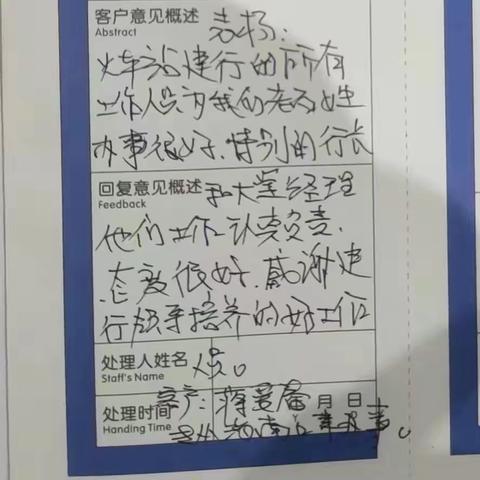 客户意见概述 表扬:
Abstract
火车站建行的所有
工作人员为我们老百姓
办事很好.特别的行长
回复意见概述 和大堂经理
Feedback
他们工作认真负责.
态度很好.感谢建
行领导培养的好工作
处理人姓名 人员。
Staff's Name
客户:蒋 月 日
处理时间
Handing Time